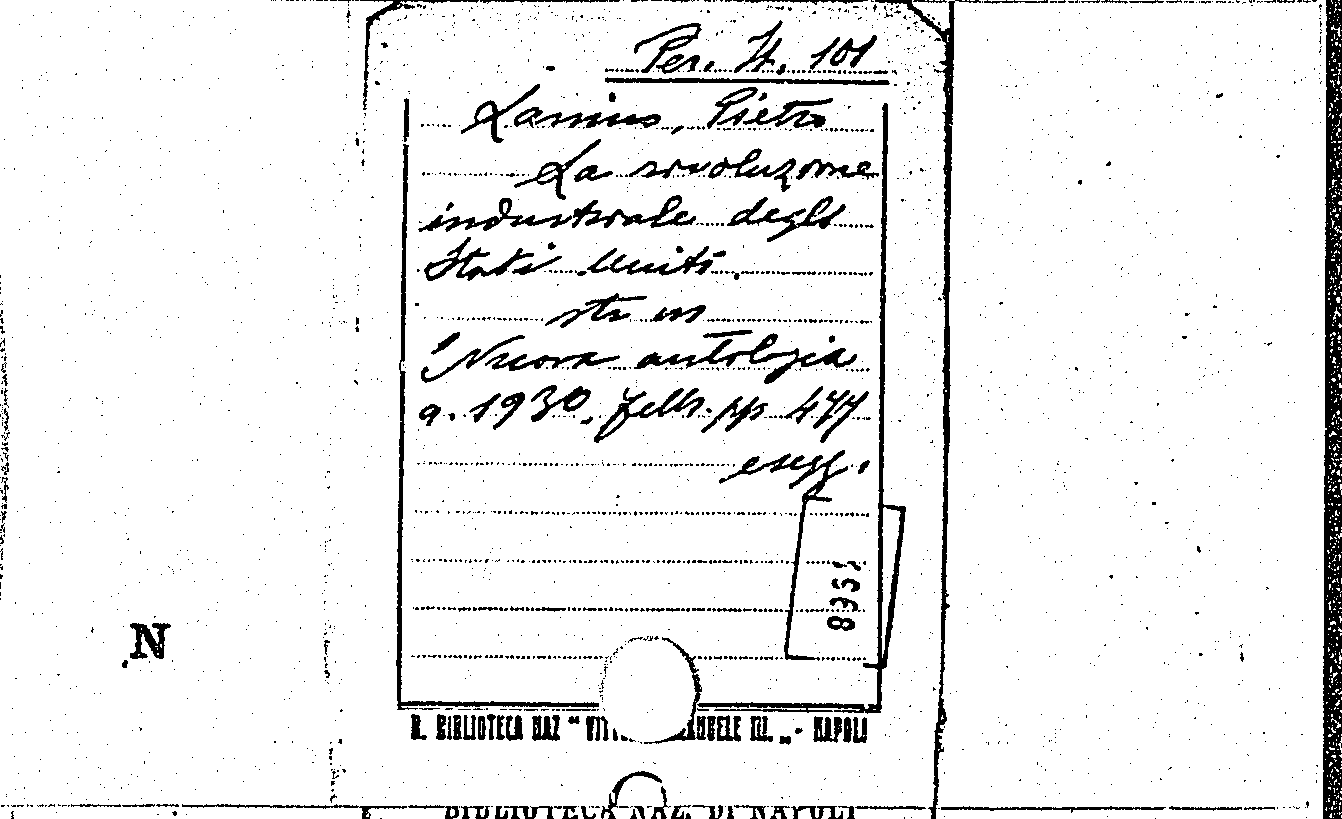 Per. It. 101
Lanino, Pietro
La rivoluzione
industriale degli
Stati Uniti.
sta in
Nuova antologia
a. 1930. febb. pp 477
e segg.
8351
N
R. BIBLIOTECA NAZ " VITT ANUELE III. „ - NAPOLI
BIBLIOTECA NAZ. DI NAPOLI